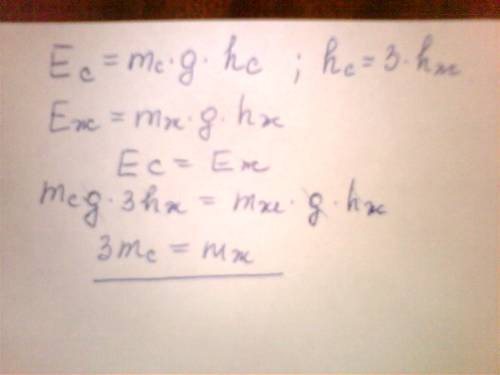 Eс = mс · g · hс ; hс = 3 · hж
Eж = mж · g · hж
Eс = Eж
mсg · 3hж = mж · g · hж
3mс = mж